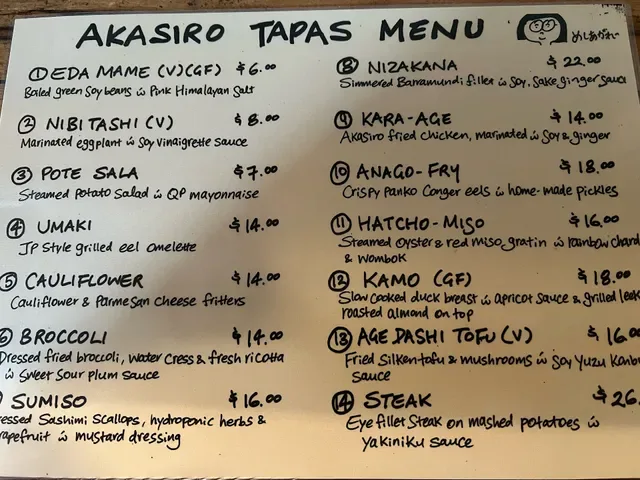 AKASIRO TAPAS MENU
めしあがれ
① EDA MAME (V)(GF) $6.00
Boiled green soy beans w Pink Himalayan Salt
② NIBITASHI (V) $8.00
Marinated eggplant w Soy Vinaigrette sauce
③ POTE SALA $7.00
Steamed Potato Salad w QP mayonnaise
④ UMAKI $14.00
JP Style grilled eel omelette
⑤ CAULIFLOWER $14.00
Cauliflower & Parmesan cheese fritters
⑥ BROCCOLI $14.00
Dressed fried broccoli, water cress & fresh ricotta
w sweet sour plum sauce
SUMISO $16.00
ressed Sashimi Scallops, hydroponic herbs &
rapefruit w mustard dressing
⑧ NIZAKANA $22.00
Simmered Barramundi fillet w soy, sake ginger sauce
⑨ KARA-AGE $14.00
Akasiro fried chicken, marinated w soy & ginger
⑩ ANAGO-FRY $18.00
Crispy Panko Conger eels w home-made pickles
⑪ HATCHO-MISO $16.00
Steamed Oyster & red miso gratin w rainbow chard
& wombok
⑫ KAMO (GF) $18.00
Slow cooked duck breast w apricot sauce & grilled leek
roasted almond on top
⑬ AGE DASHI TOFU (V) $16.00
Fried Silken tofu & mushrooms w Soy Yuzu Konbu
sauce
⑭ STEAK $26.
Eye fillet Steak on mashed potatoes w
Yakiniku sauce